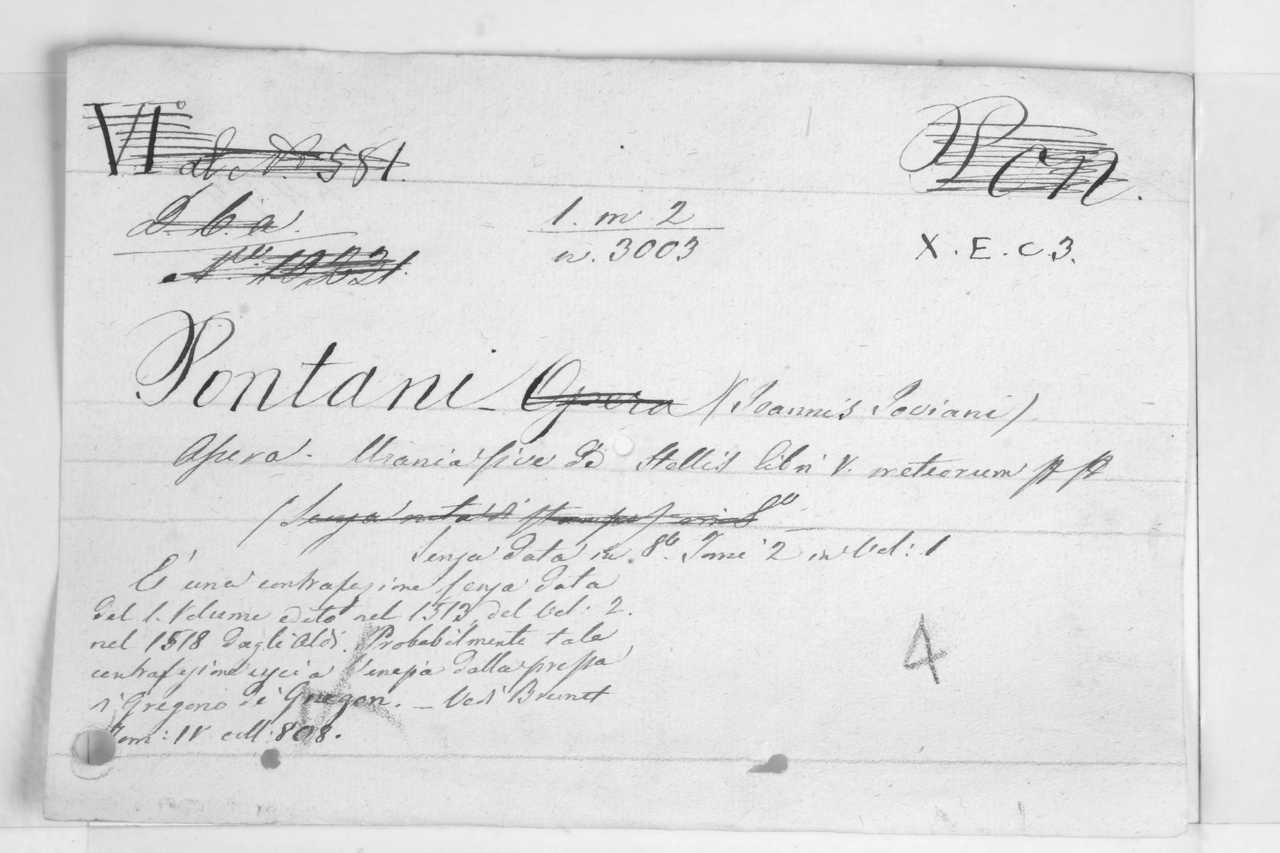 VI° ab N° 581. Pon.
D. b. a. 1. m 2
n. 3003 X. E. c 3.
N° 10321.
Pontani - Opera (Joannis Joviani)
Opera. Urania sive de Stellis libri V. meteorum
(Senza nota di stampa) in 8°
Senza data in 8°. Tomi 2 in Vol: 1
È una contrafazione senza data
del 1. Volume edito nel 1513, del Vol: 2.
nel 1518 dagli Aldi. Probabilmente tale
contrafazione uscì a Venezia dalla pressa
di Gregorio de Gregori. - Vedi Brunet
Tom: IV coll: 808.
4